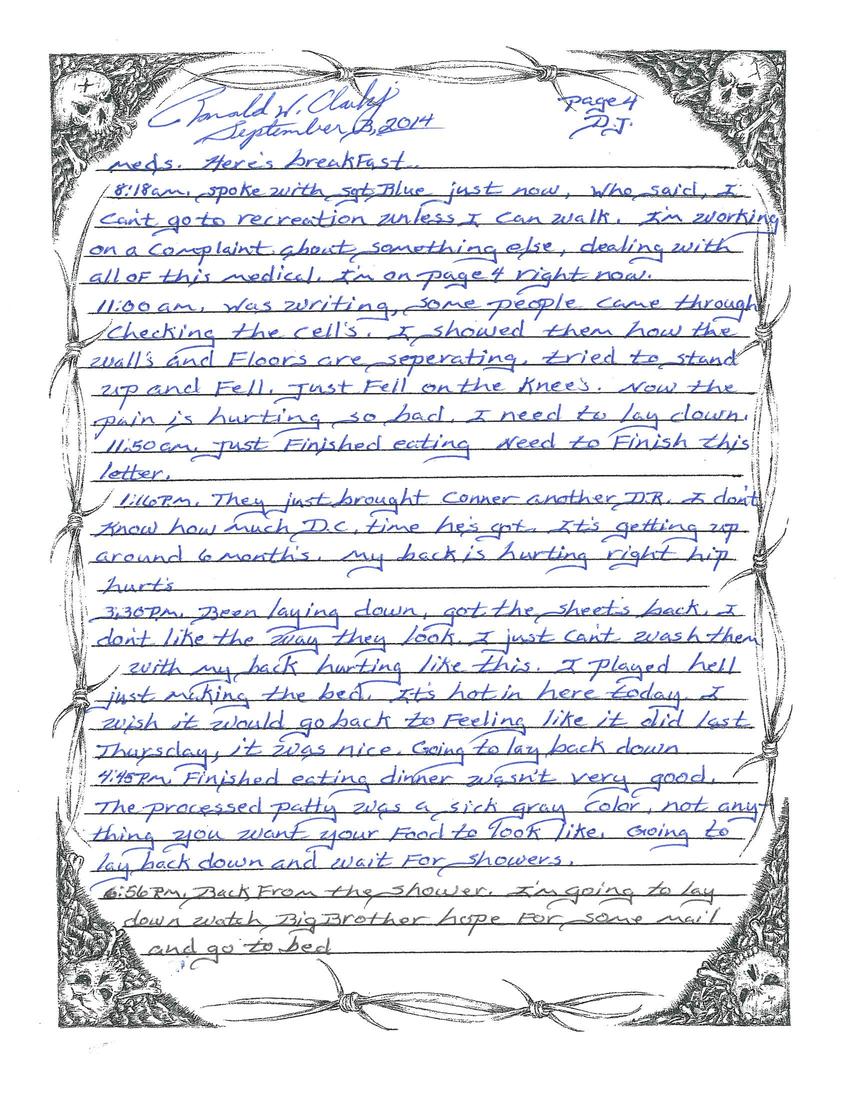 Ronald W. Clark Jr
Page 4
September 3, 2014
D.J.
meds. Here's breakfast.
8:18am. spoke with sgt, Blue just now, who said, I
can't go to recreation unless I can walk. I'm working
on a complaint about something else, dealing with
all of this medical. I'm on page 4 right now.
11:00 am. Was writing, some people came through
checking the cell's. I showed them how the
wall's and Floors are seperating. tried to stand
up and Fell. Just Fell on the Knee's. Now the
pain is hurting so bad. I need to lay down.
11:50 am. Just Finished eating Need to Finish this
letter.
1:16 P.m. They just brought Conner another D.R. I don't
Know how much D.C. time he's got. It's getting up
around 6 month's. My back is hurting right hip
hurt's
3:30 P.m. Been laying down, got the sheet's back. I
don't like the way they look. I just can't wash them
with my back hurting like this. I played hell
just making the bed. It's hot in here today. I
wish it would go back to Feeling like it did last
Thursday, it was nice. Going to lay back down
4:45 P.m. Finished eating dinner wasn't very good.
The processed patty was a sick gray color, not any-
thing you want your Food to look like. Going to
lay back down and wait For showers.
6:56 P.m. Back From the shower. I'm going to lay
down watch Big Brother hope For some mail
and go to bed